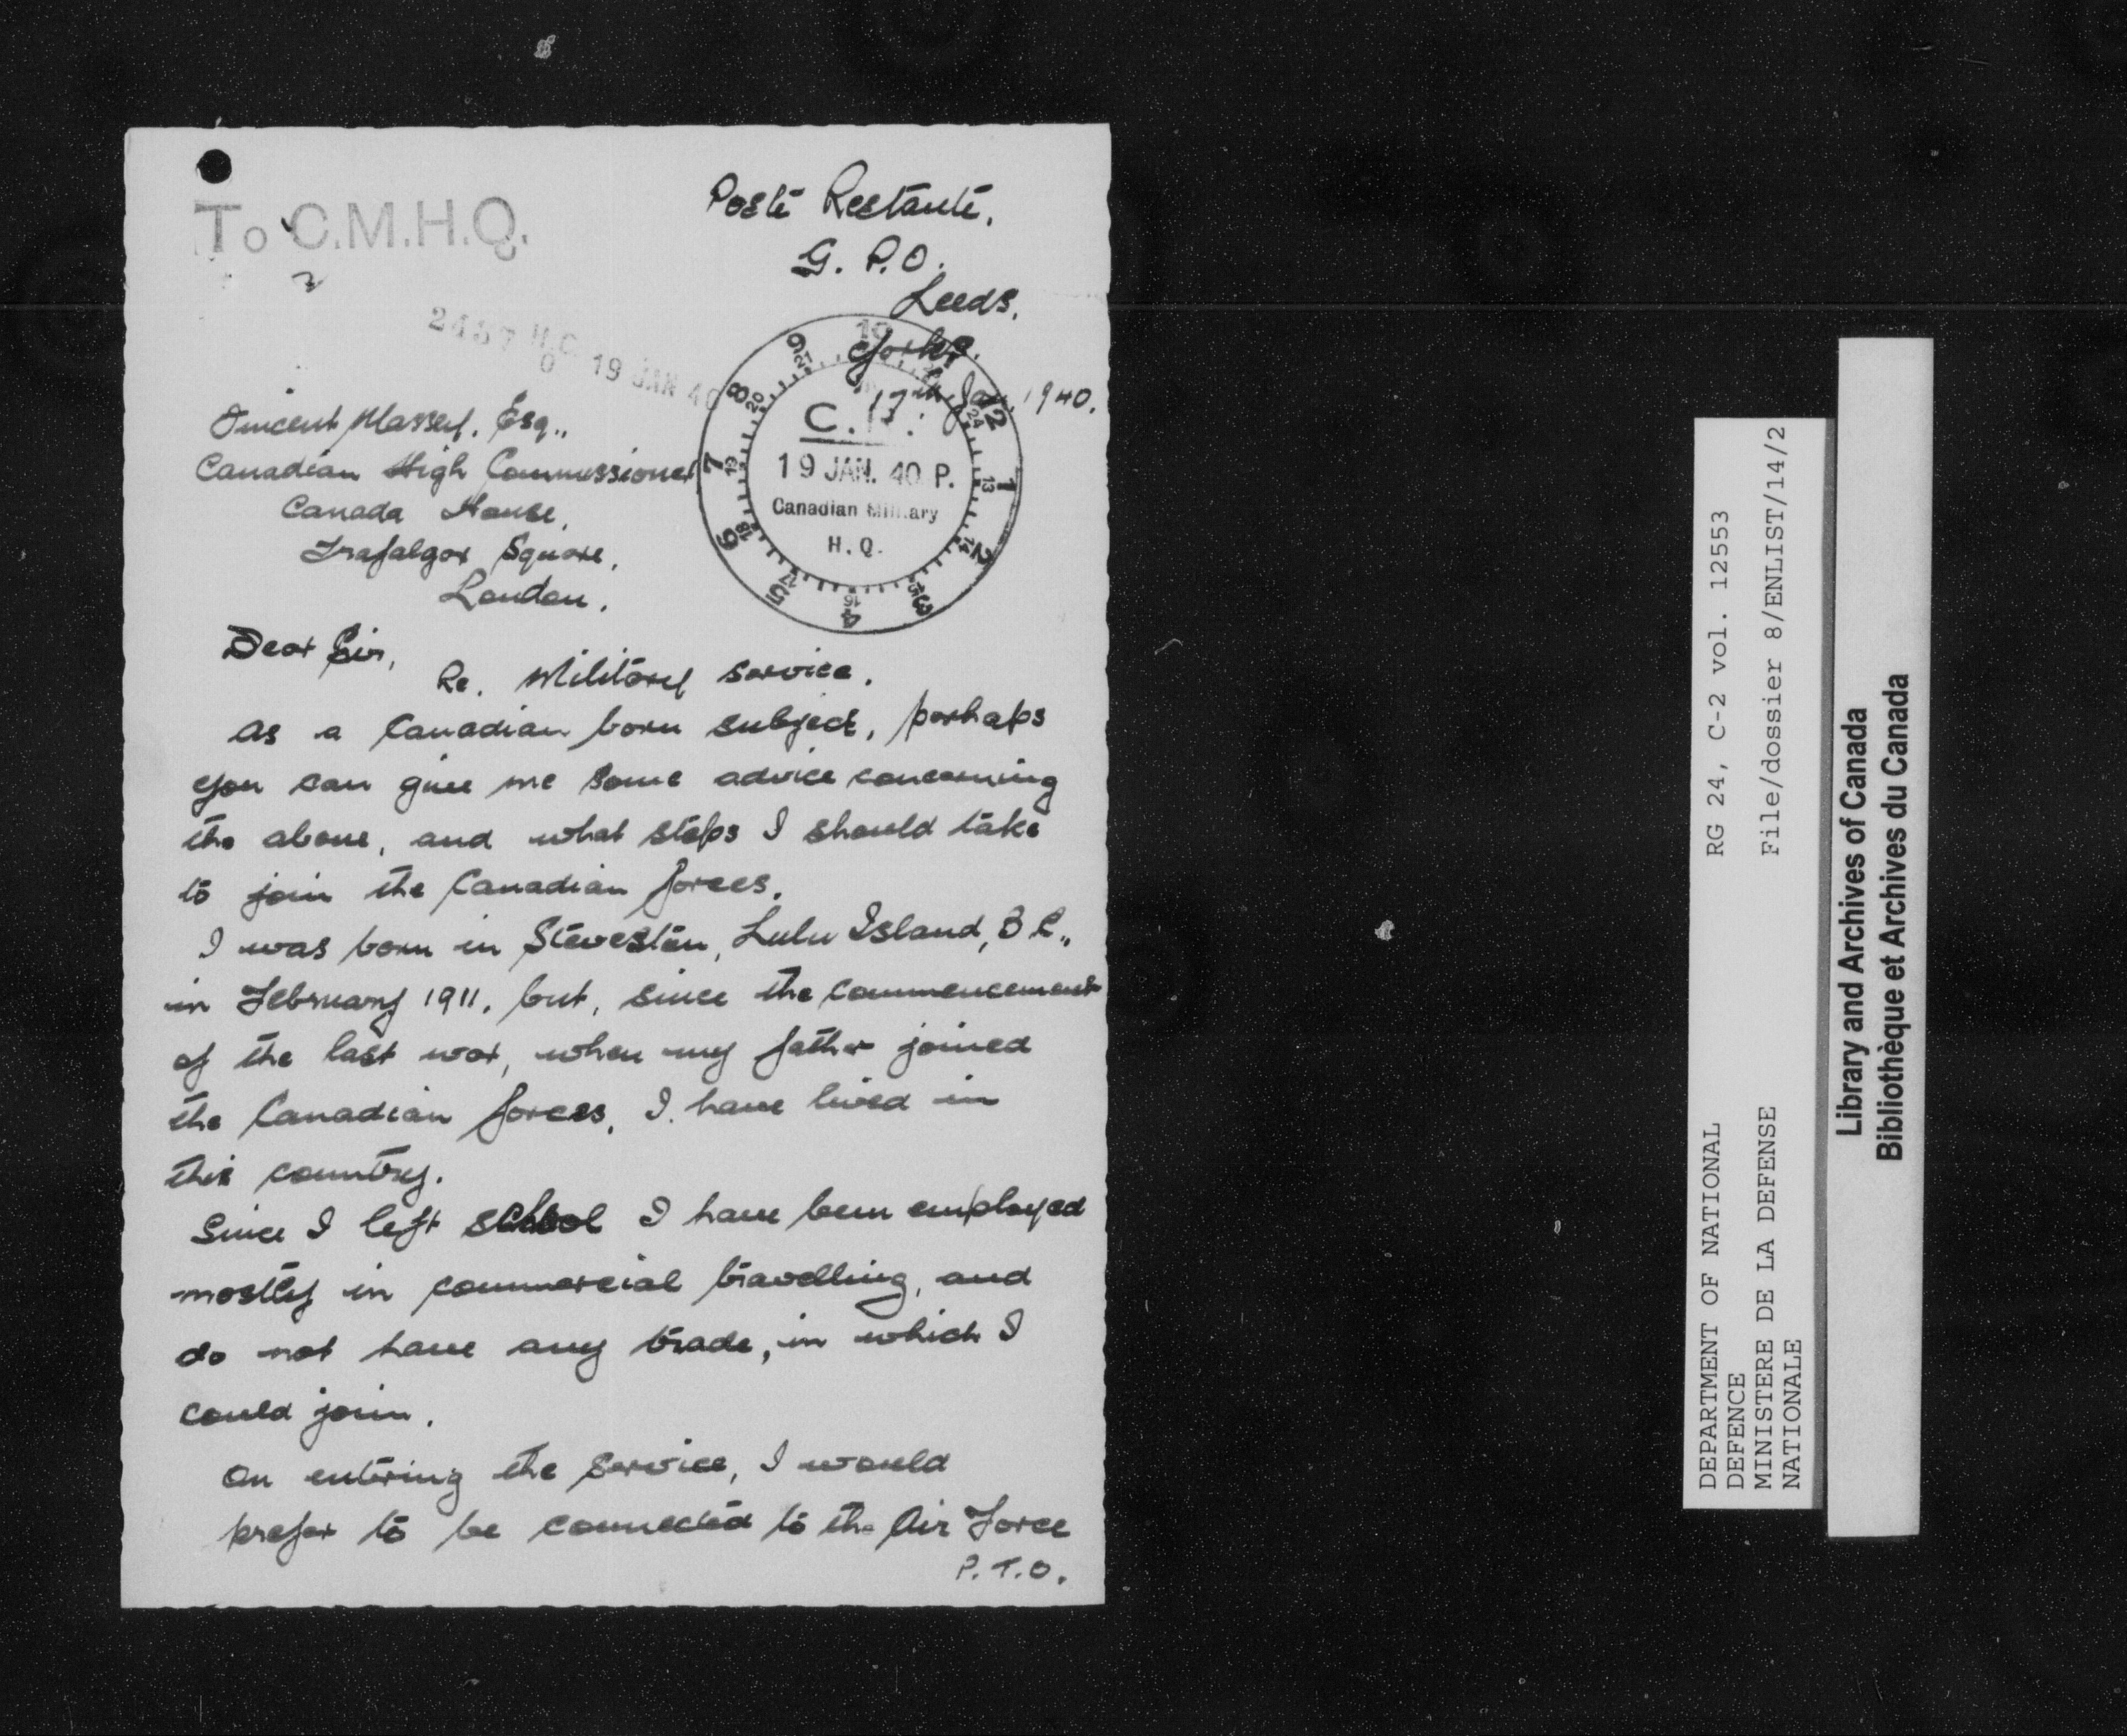 To C.M.H.Q.
Poste Restante,
G. P.O.
Leeds,
Yorks.
17th Jan, 1940.
H.C. 19 JAN 40
10
9
21
8
20
7
19
6
18
5
17
4
16
3
15
2
14
1
13
12
24
19 JAN. 40 P.
Canadian Military
H.Q.
Vincent Massey, Esq.,
Canadian High Commissioner
Canada House,
Trafalgar Square,
London.
Dear Sir,
Re. Military Service.
As a Canadian born subject, perhaps
you can give me some advice concerning
the above, and what steps I should take
to join the Canadian forces.
I was born in Steveston, Lulu Island, B.C.,
in February 1911, but, since the commencement
of the last war, when my father joined
the Canadian forces, I have lived in
this country.
Since I left school I have been employed
mostly in commercial travelling, and
do not have any trade, in which I
could join.
On entering the service, I would
prefer to be connected to the Air Force
P.T.O.
RG 24, C-2 vol. 12553
File/dossier 8/ENLIST/14/2
DEPARTMENT OF NATIONAL
DEFENCE
MINISTERE DE LA DEFENSE
NATIONALE
Library and Archives of Canada
Bibliothèque et Archives du Canada